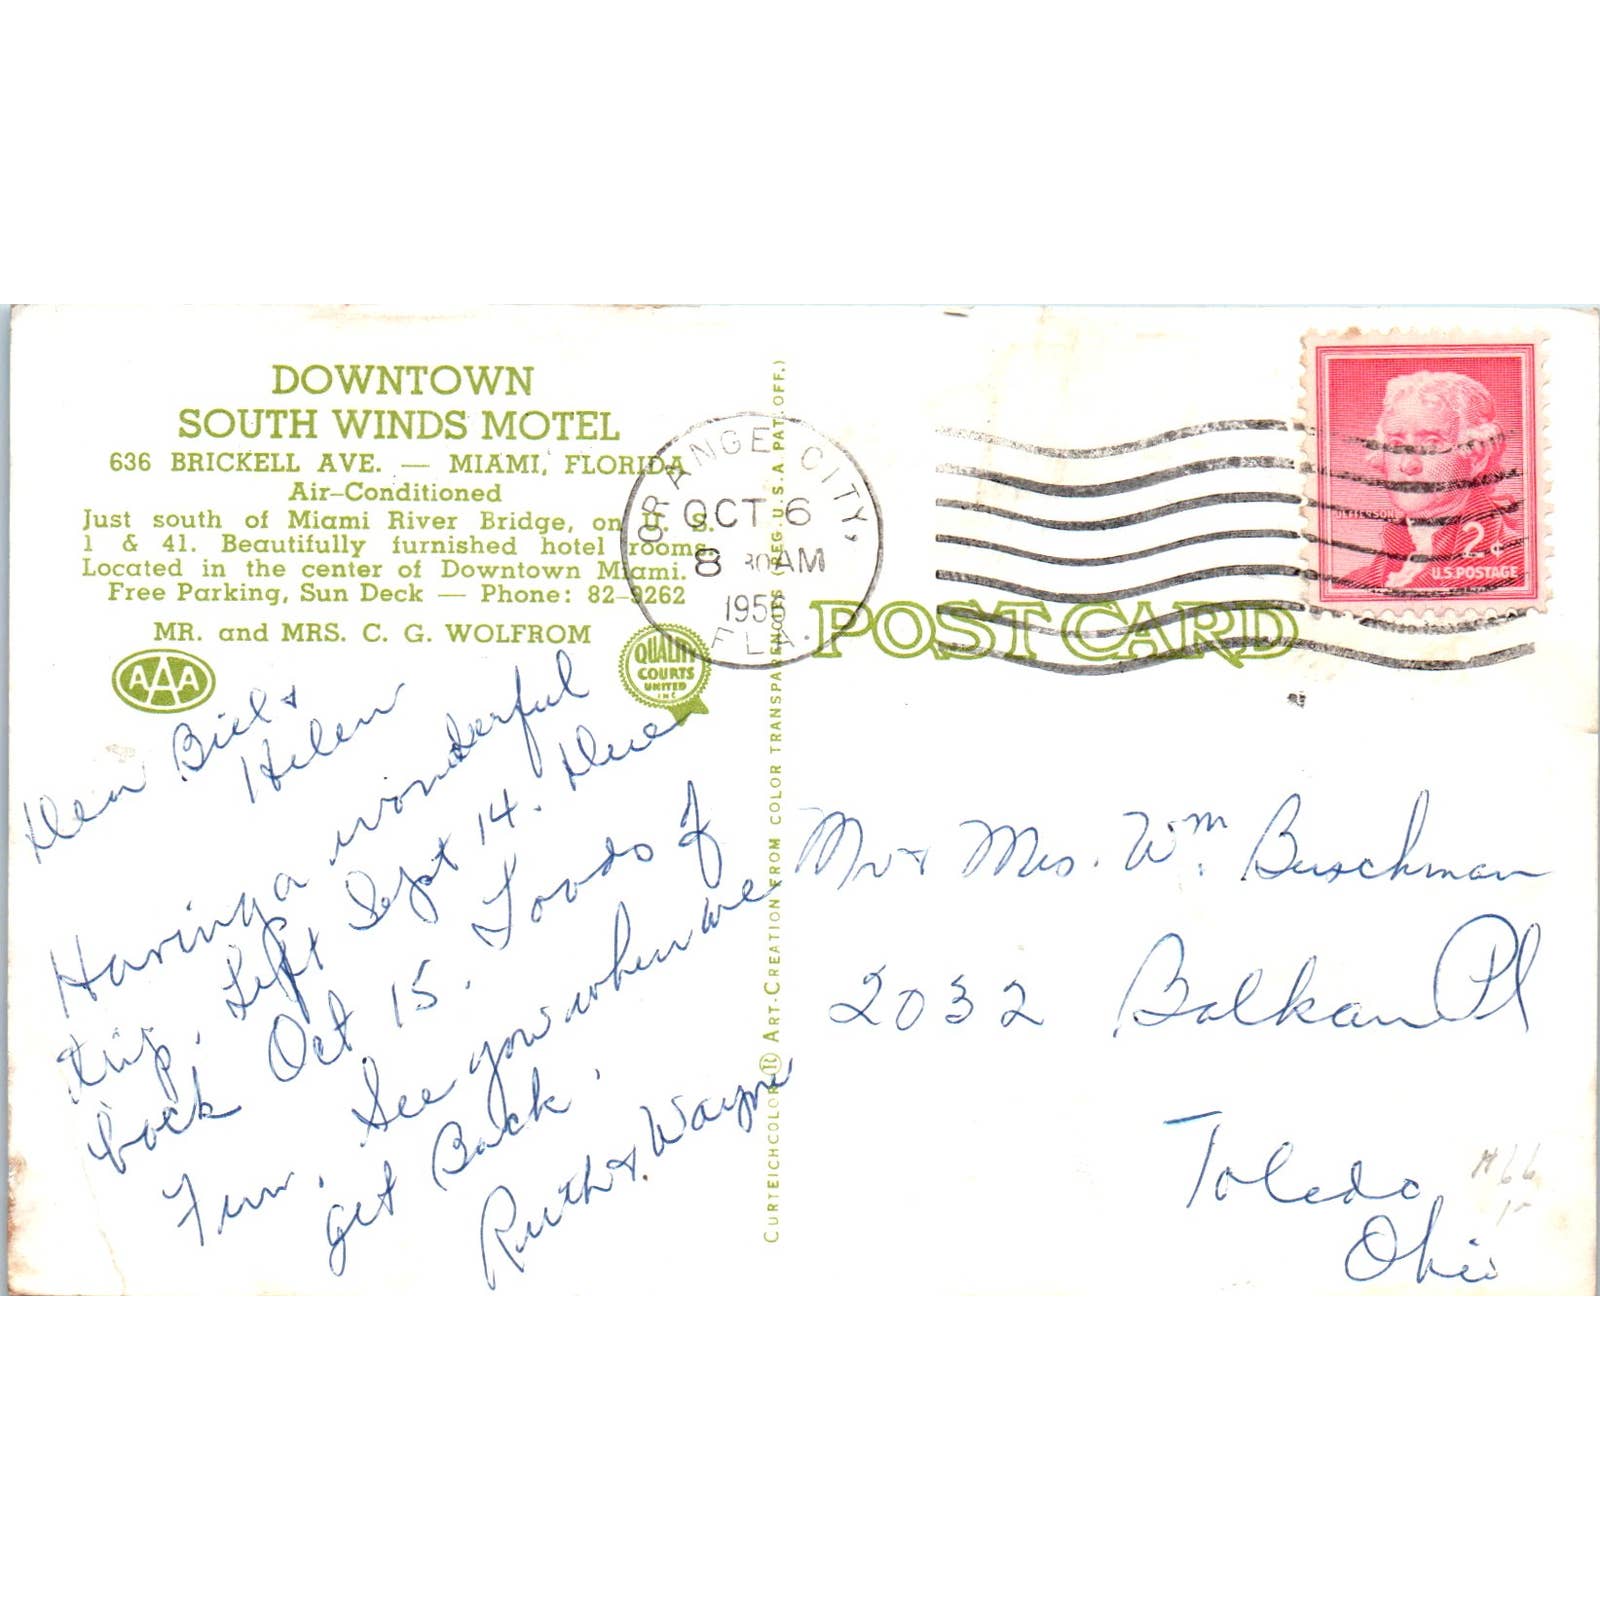 DOWNTOWN
SOUTH WINDS MOTEL
636 BRICKELL AVE. — MIAMI, FLORIDA
Air-Conditioned
Just south of Miami River Bridge, on U. S.
1 & 41. Beautifully furnished hotel rooms.
Located in the center of Downtown Miami.
Free Parking, Sun Deck — Phone: 82-9262
MR. and MRS. C. G. WOLFROM
AAA
QUALITY
COURTS
UNITED
INC
Dear Bill &
Helen
Having a wonderful
trip. Left Sept 14. Due
back Oct 15. Loads of
Fun. See you when we
get Back.
Ruth & Wayne
CURTEICHCOLOR ® ART-CREATION FROM COLOR TRANSPARENCIES (REG. U.S.A. PAT. OFF.)
ORANGE CITY,
OCT 6
8 30 AM
1956
FLA.
POST CARD
JEFFERSON
2¢
U.S. POSTAGE
Mr & Mrs. Wm. Buschman
2032 Balkan Pl
Toledo,
Ohio